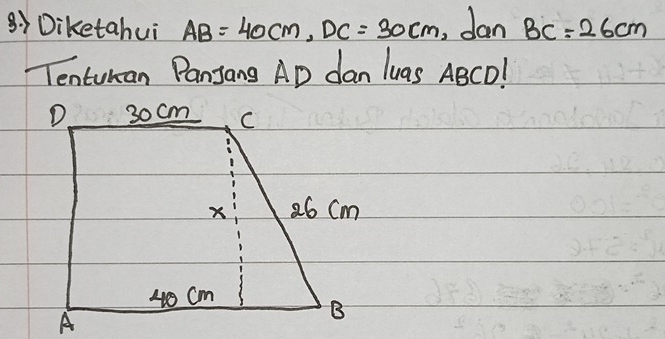 3.) Diketahui AB = 40 cm, DC = 30 cm, dan BC = 26 cm
Tentukan Panjang AD dan luas ABCD!
D 30 cm C
x 26 cm
40 cm
A B